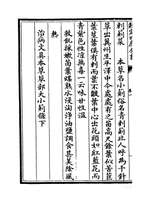 刺薊菜　本草名小薊俗名青刺薊北人呼為千針
草出冀州生平澤中今處處有之苗高尺餘葉似苦苣
葉莖葉俱有刺而葉不皺葉中心出花頭如紅藍花而
青紫色性涼無毒一云味甘性溫
救飢採嫩苗葉煠熟水浸淘淨油鹽調食甚美除風
熱
治病文具本草草部大小薊條下